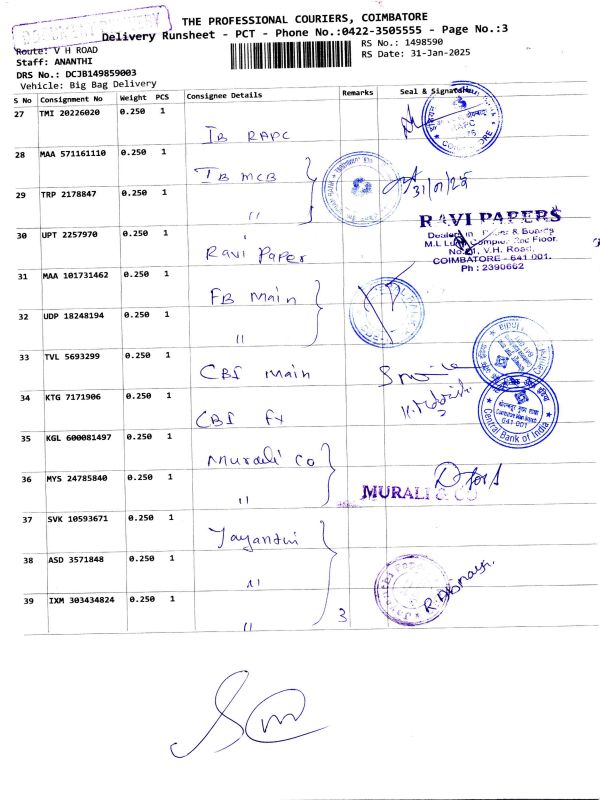 DOCUMENT DELIVERY
THE PROFESSIONAL COURIERS, COIMBATORE
Delivery Runsheet - PCT - Phone No.:0422-3505555 - Page No.:3
Route: V H ROAD
RS No.: 1498590
Staff: ANANTHI
RS Date: 31-Jan-2025
DRS No.: DCJB149859003
Vehicle: Big Bag Delivery
S No Consignment No Weight PCS Consignee Details Remarks Seal & Signature
27 TMI 20226020 0.250 1
IB RAPC
RAPC
28 MAA 571161110 0.250 1
IB MCB
31/01/25
29 TRP 2178847 0.250 1
"
RAVI PAPERS
Dealers in Paper & Boards
30 UPT 2257970 0.250 1
Ravi Paper
Floor.
V.H. Road,
COIMBATORE - 641 001.
Ph : 2390662
31 MAA 101731462 0.250 1
FB Main
32 UDP 18248194 0.250 1
"
33 TVL 5693299 0.250 1
CBI Main
34 KTG 7171906 0.250 1
CBI Fx
Central Bank of India
641-001
35 KGL 600081497 0.250 1
Murali Co
36 MYS 24785840 0.250 1
"
MURALI & CO
37 SVK 10593671 0.250 1
Jayanthi
38 ASD 3571848 0.250 1
"
39 IXM 303434824 0.250 1
"
3